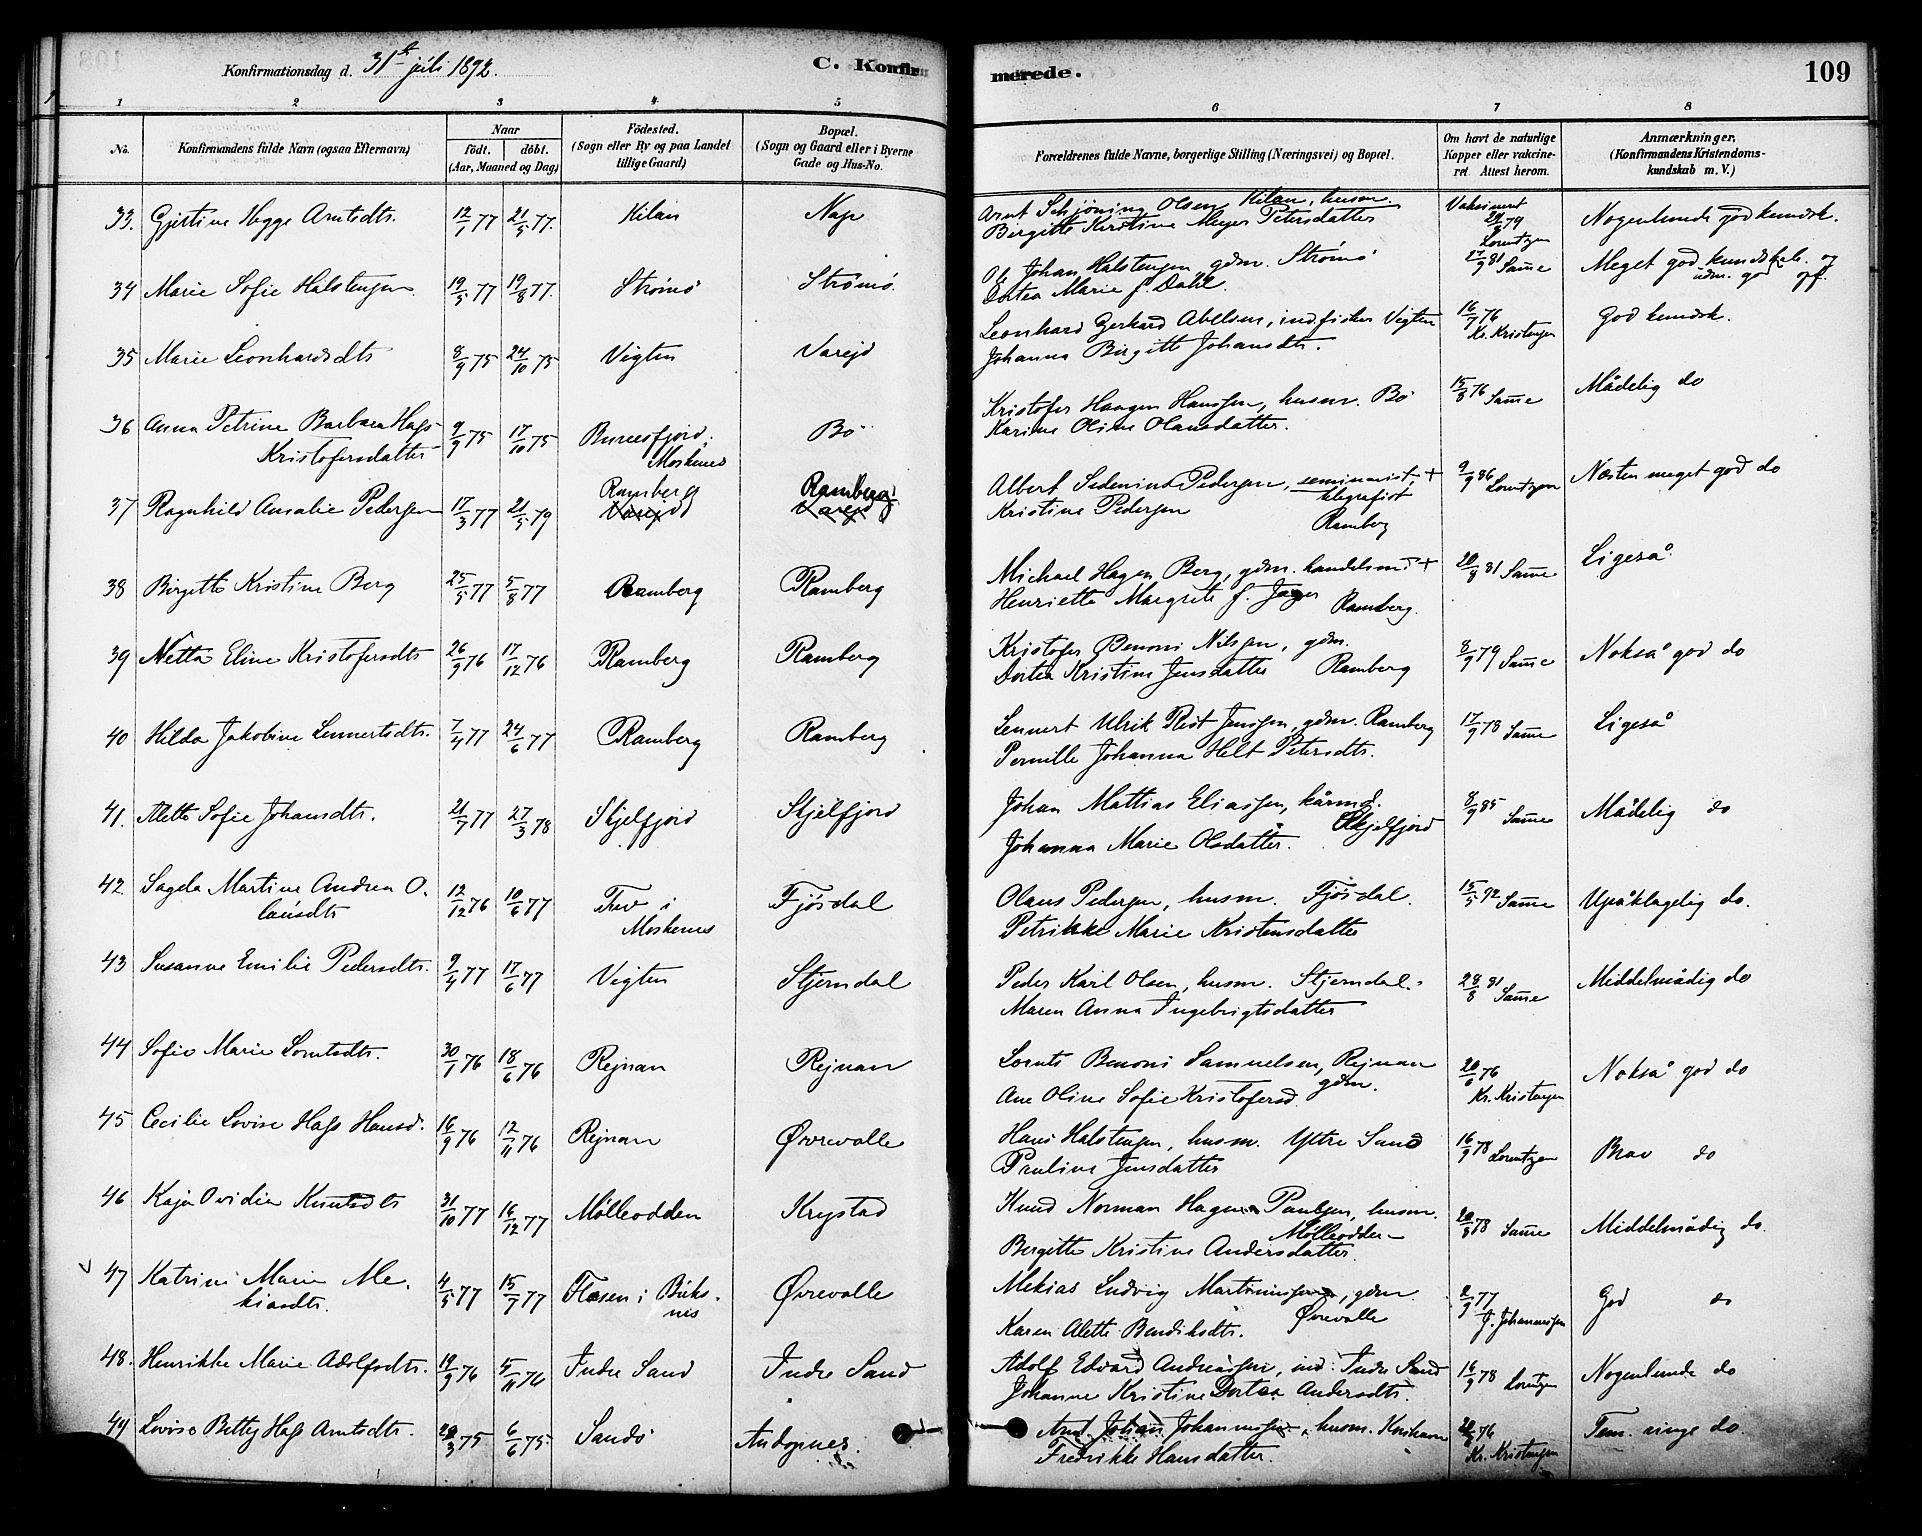 Konfirmationsdag d. 31te juli 1892.
C. Konfirmerede.
109
1 2 3 4 5 6 7 8
No.
Konfirmandens fulde Navn (ogsaa Efternavn)
Naar
født. døbt.
(Aar, Maaned og Dag)
Fødested.
(Sogn eller By og paa Landet
tillige Gaard)
Bopæl.
(Sogn og Gaard eller i Byerne
Gade og Hus-No.
Forældrenes fulde Navne, borgerlige Stilling (Næringsvei) og Bopæl.
Om havt de naturlige
Kopper eller vakcine-
ret. Attest herom.
Anmærkninger,
(Konfirmandens Kristendoms-
kundskab m. V.)
33. Gjertine Hegge Arntsdtr. 12/1 77 21/5 77. Kilan Nap
Arnt Schjöning Olsen Kilan, husm.
Bergitte Kirstine Meyer Petersdatter
Vaksinert 79 Lorentzen
Nogenlunde god kundsk.
34 Marie Sofie Halstensen 19/5 77 19/8 77. Strømø Strømø.
Johan Halstensen gdm. Strømø
Dortea Marie f. Dahl.
27/9 81 Samme
Meget god kundskab. og
udm. god opf.
35 Marie Leonhardsdtr 8/9 75 24/10 75 Vigten Varejd
Leonhard Gerhard Abelsen, ind. fisker Vigten
Johanna Birgitte Johansdtr.
16/7 76 Kr. Kristensen
God kundsk.
36 Anna Petrine Barbara Hags
Kristofersdatter 9/9 75 17/10 75 Bunesfjord, Moskenes Bø
Kristofer Haagen Hanssen, husm. Bø
Karine Oline Olausdatter.
15/8 76 Samme
Mådelig do
37 Ragnhild Amalie Pedersen 17/3 77 21/5 79 Ramberg Varejd Ramberg Varejd
Albert Pedersen, seminarist, +
telegrafist
Kristine Pedersen Ramberg
9/9 86 Lorentzen
Næsten meget god do
38 Birgitte Kristine Berg 25/5 77 5/8 77 Ramberg Ramberg
Michael Hagen Berg, gdm. handelsmd +
Henriette Margrete f. Jæger Ramberg.
20/8 81 Samme
Ligeså
39 Netta Eline Kristofersdtr 26/9 76 17/12 76 Ramberg Ramberg
Kristofer Benoni Nilsen, gdm.
Dortea Kristine Jensdatter Ramberg
8/9 79 Samme
Nokså god do
40 Hilda Jakobine Lennertsdtr. 7/4 77 24/6 77 Ramberg Ramberg
Lennert Ulrik Rist Jenssen, gdm. Ramberg
Pernille Johanna Helt Petersdtr.
17/9 78 Samme
Ligeså
41. Alette Sofie Johansdtr. 21/7 77 27/3 78 Skjelfjord Skjelfjord
Johan Mattias Eliassen, kårmd.
Skjelfjord
Johanna Marie Olsdatter.
8/9 85 Samme
Mådelig do
42. Sagda Martine Andrea O-
lausdtr 12/12 76 10/6 77 Tuv i Moskenes Fjøsdal
Olaus Pedersen, husm. Fjøsdal.
Petrikke Marie Kristensdatter
15/5 92 Samme
Upåklagelig do.
43 Susanne Emilie Pedersdtr. 9/4 77 17/6 77 Vigten Stjerndal
Peder Karl Olsen, husm. Stjerndal.
Maren Anna Ingebrigtsdatter
28/8 81 Samme
Middelmådig do
44 Sofie Marie Lorntsdtr. 30/1 76 18/6 76 Rejnan Rejnan
Lornts Benoni Samuelsen, Rejnan
gdm.
Ane Oline Sofie Kristofersd.
20/6 76 Kr. Kristensen
Nokså god do
45 Cecilie Lovise Hags Hansd. 16/9 76 12/11 76 Rejnan Øvrevalle
Hans Halstensen, husm. Ytre Sand
Pauline Jensdatter
16/9 78 Lorentzen
Brav do
46 Kaja Ovidia Knutsdtr 31/10 77 16/12 77 Mølleodden Krystad
Knud Norman Hagen Paulsen, husm.
Mølleodden
Bergitte Kristine Andersdatter.
20/8 78 Samme
Middelmådig do.
47 Katrine Marie Me-
kiasdtr. 4/5 77 15/7 77 Flæsen i Buksnes Øvrevalle
Mekias Ludvig Martinussen, gdm.
Øvrevalle
Karen Alette Bendiksdtr.
2/9 77 J. Johannessen
God do
48. Henrikke Marie Adolfsdtr. 19/9 76 5/11 76 Indre Sand Indre Sand
Adolf Edvard Andreassen, ind. Indre Sand
Johanne Kristine Dortea Andersdtr.
16/9 78 Lorentzen
Nogenlunde do
49 Lovise Betty Hags Arntsdtr. 75 6/6 75. Sandø Andopnes.
Arnt Johan Johannessen, husm.
Fredrikke Hansdatter.
76 Kr. Kristensen
Tem. ringe do.